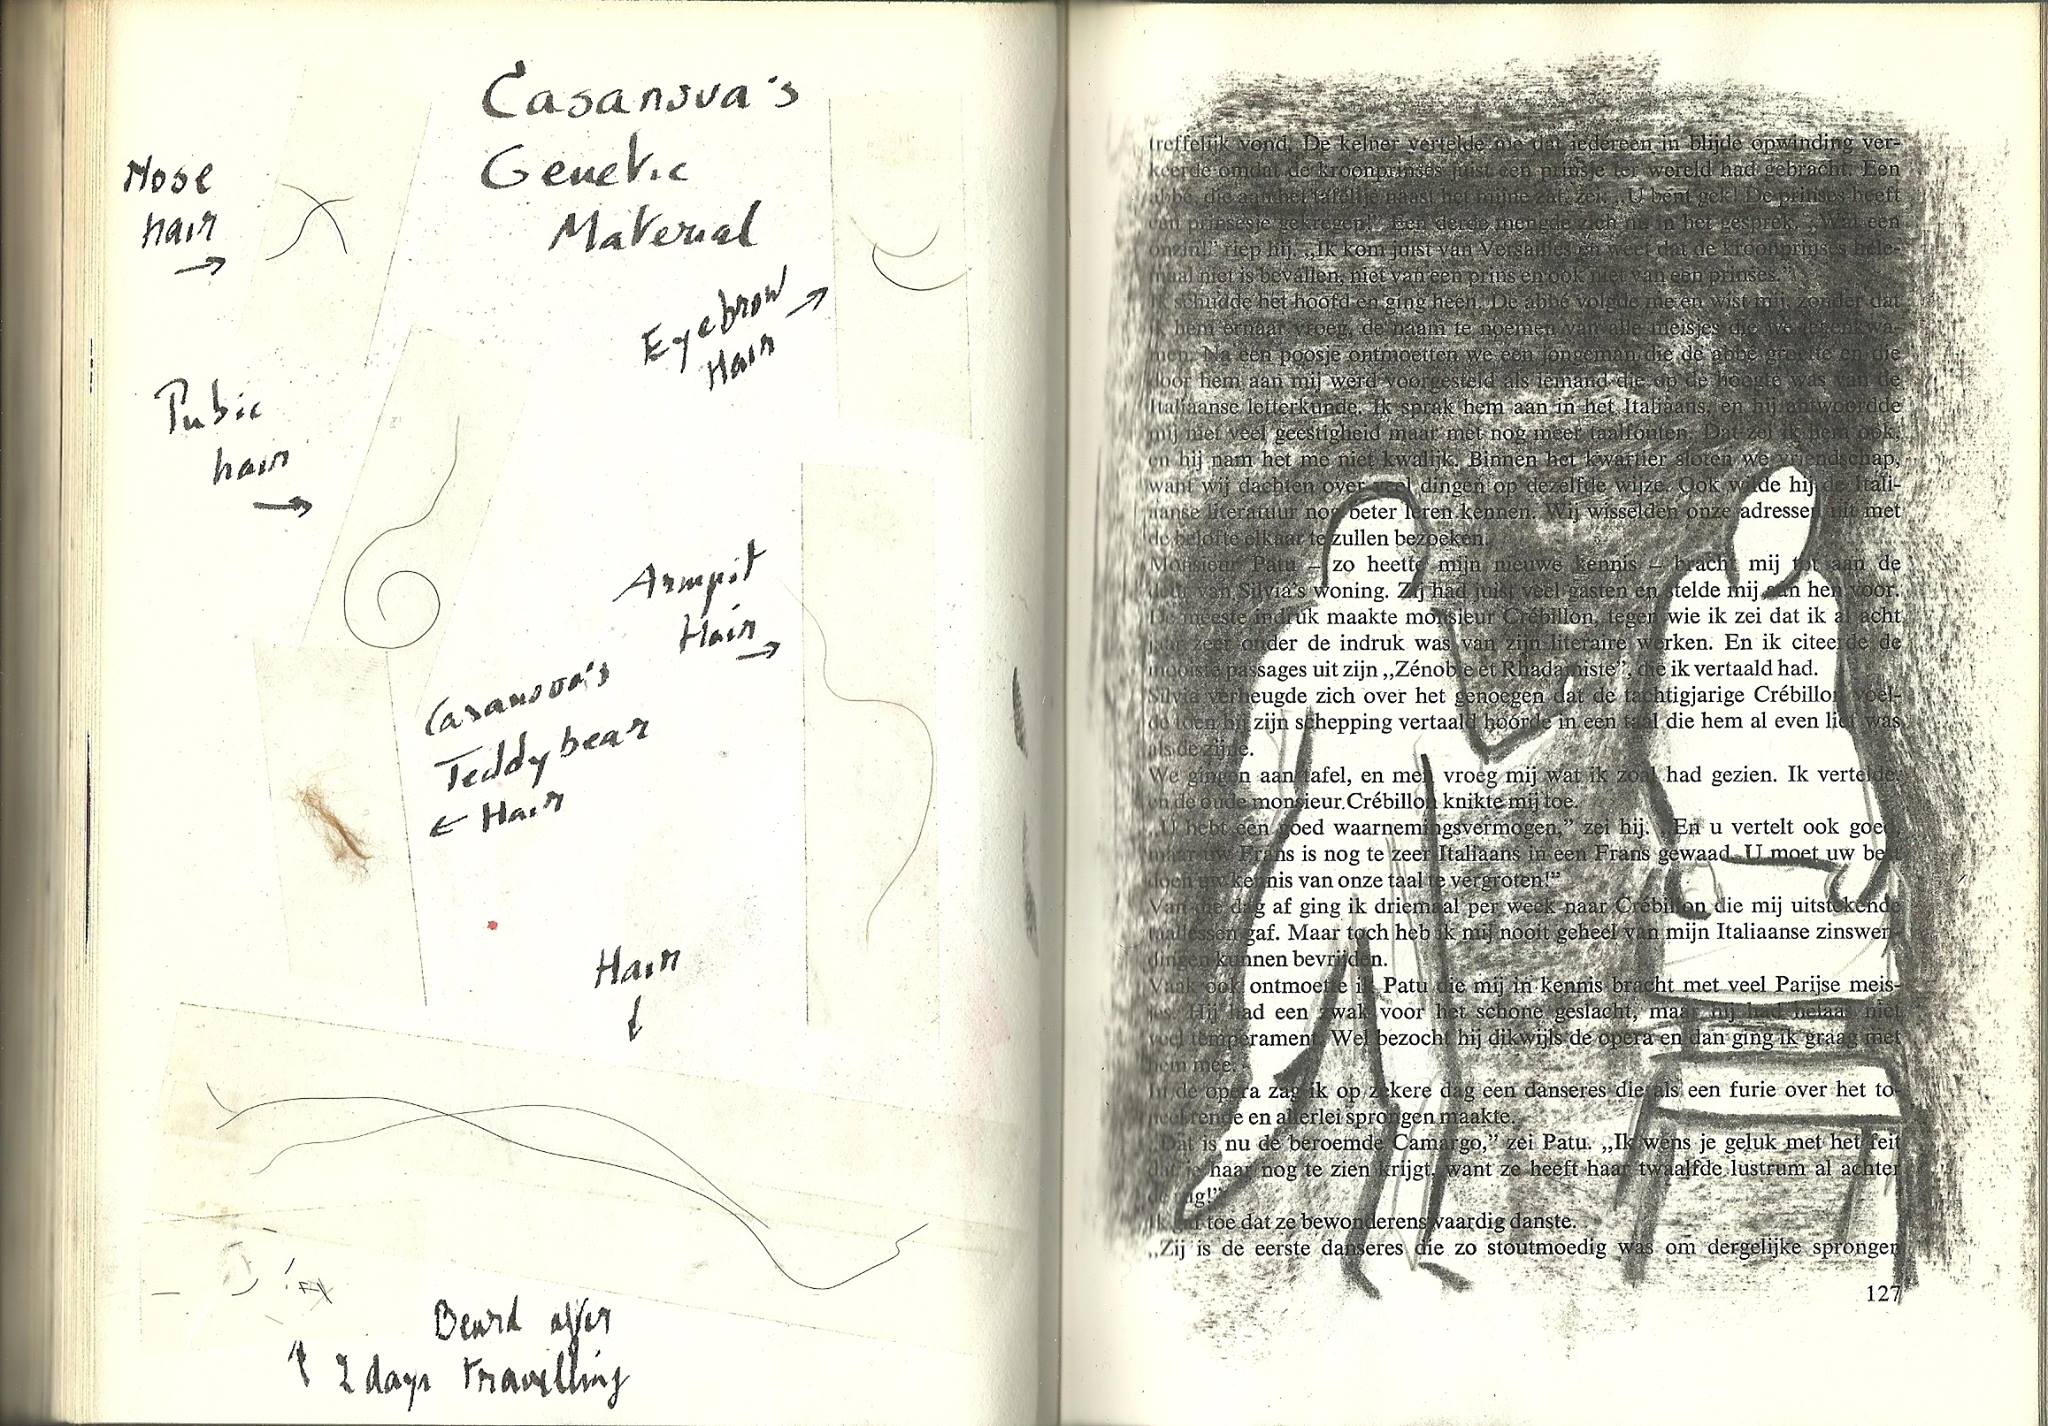 Casanova's
Genetic
Material
Nose
hair
→
Eyebrow
Hair
→
Pubic
hair
→
Armpit
Hair
→
Casanova's
Teddybear
← Hair
Hair
↓
Beard after
↑ 2 days travelling
treffelijk vond. De kelner vertelde me dat iedereen in blijde opwinding ver-
keerde omdat de kroonprinses juist een prinsje ter wereld had gebracht. Een
abbé, die aan het tafeltje naast het mijne zat, zei: „U bent gek! De prinses heeft
een prinsesje gekregen!” Een derde mengde zich nu in het gesprek. „Wat een
onzin!” riep hij. „Ik kom juist van Versailles en weet dat de kroonprinses hele-
maal niet is bevallen, niet van een prins en ook niet van een prinses.”
Ik schudde het hoofd en ging heen. De abbé volgde me en wist mij, zonder dat
ik hem ernaar vroeg, de naam te noemen van alle meisjes die we tegenkwa-
men. Na een poosje ontmoetten we een jongeman die de abbé groette en die
door hem aan mij werd voorgesteld als iemand die op de hoogte was van de
Italiaanse letterkunde. Ik sprak hem aan in het Italiaans, en hij antwoordde
mij niet veel geestigheid maar met nog meer taalfouten. Dat zei ik hem ook,
en hij nam het me niet kwalijk. Binnen het kwartier sloten we vriendschap,
want wij dachten over veel dingen op dezelfde wijze. Ook wilde hij de Itali-
aanse literatuur nog beter leren kennen. Wij wisselden onze adressen uit met
de belofte elkaar te zullen bezoeken.
Monsieur Patu – zo heette mijn nieuwe kennis – bracht mij tot aan de
deur van Silvia's woning. Zij had juist veel gasten en stelde mij aan hen voor.
De meeste indruk maakte monsieur Crébillon, tegen wie ik zei dat ik al acht
jaar zeer onder de indruk was van zijn literaire werken. En ik citeerde de
mooiste passages uit zijn „Zénobie et Rhadamiste”, die ik vertaald had.
Silvia verheugde zich over het genoegen dat de tachtigjarige Crébillon voel-
de toen hij zijn schepping vertaald hoorde in een taal die hem al even lief was
als de zijne.
We gingen aan tafel, en men vroeg mij wat ik zoal had gezien. Ik vertelde,
en de oude monsieur Crébillon knikte mij toe.
„U hebt een goed waarnemingsvermogen,” zei hij. „En u vertelt ook goed,
maar uw Frans is nog te zeer Italiaans in een Frans gewaad. U moet uw best
doen uw kennis van onze taal te vergroten!”
Van die dag af ging ik driemaal per week naar Crébillon die mij uitstekende
taallessen gaf. Maar toch heb ik mij nooit geheel van mijn Italiaanse zinswen-
dingen kunnen bevrijden.
Vaak ook ontmoette ik Patu die mij in kennis bracht met veel Parijse meis-
jes. Hij had een zwak voor het schone geslacht, maar hij had helaas niet
veel temperament. Wel bezocht hij dikwijls de opera en dan ging ik graag met
hem mee.
In de opera zag ik op zekere dag een danseres die als een furie over het to-
neel rende en allerlei sprongen maakte.
„Dat is nu de beroemde Camargo,” zei Patu. „Ik wens je geluk met het feit
dat je haar nog te zien krijgt, want ze heeft haar twaalfde lustrum al achter
de rug!”
Ik gaf toe dat ze bewonderenswaardig danste.
„Zij is de eerste danseres die zo stoutmoedig was om dergelijke sprongen
127